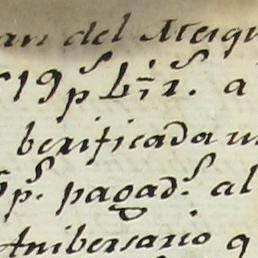 an del Merq
19 p.s L i r.s a
berificada u
p.s pagad.s al
Anibersario q